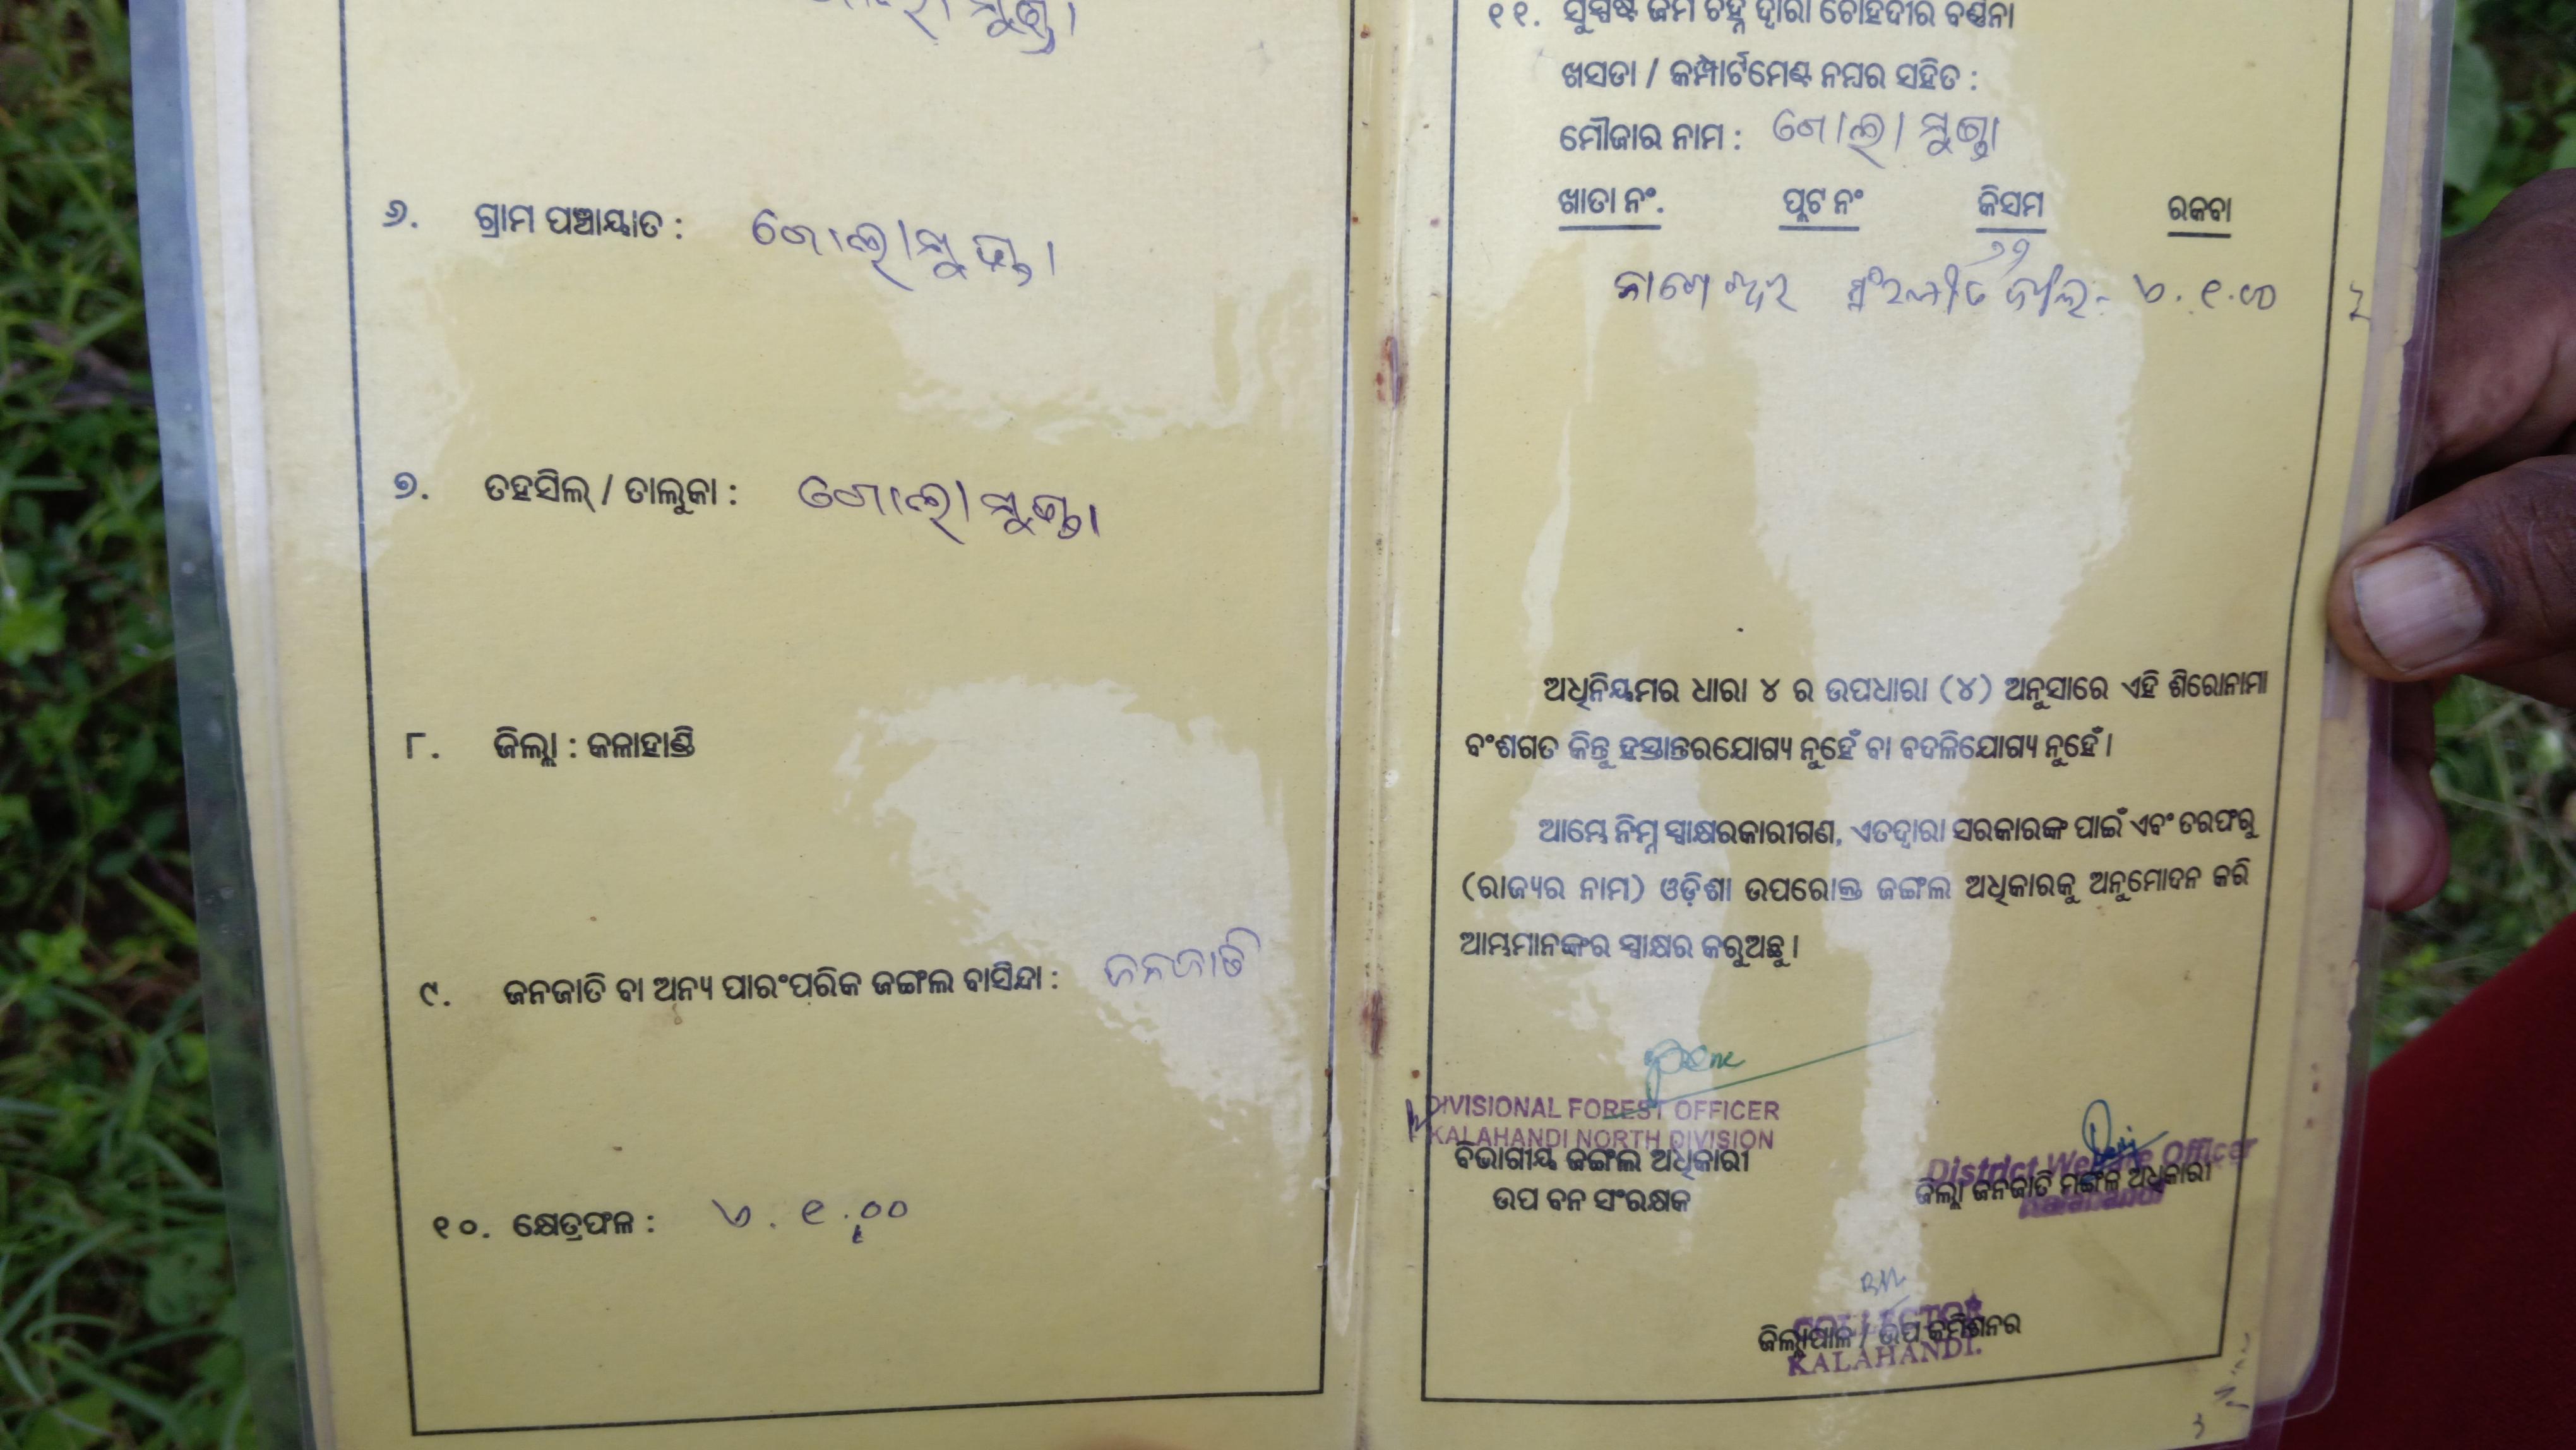 ୬. ଗ୍ରାମ ପଞ୍ଚାୟାତ : ଗୋଲାମୁଣ୍ଡା
୭. ତହସିଲ୍ / ତାଲୁକା : ଗୋଲାମୁଣ୍ଡା
୮. ଜିଲ୍ଲା : କଳାହାଣ୍ଡି
୯. ଜନଜାତି ବା ଅନ୍ୟ ପାରଂପରିକ ଜଙ୍ଗଲ ବାସିନ୍ଦା : ଜନଜାତି
୧୦. କ୍ଷେତ୍ରଫଳ : ୧.୦୦
୧୧. ସୁସ୍ପଷ୍ଟ ଜମି ଚିହ୍ନ ଦ୍ୱାରା ଚୌହଦୀର ବର୍ଣ୍ଣନା
ଖସଡା / କମ୍ପାର୍ଟମେଣ୍ଟ ନମ୍ବର ସହିତ :
ମୌଜାର ନାମ : ଗୋଲାମୁଣ୍ଡା
ଖାତା ନଂ. ପ୍ଲଟ ନଂ କିସମ ରକବା
ଅଧିନିୟମର ଧାରା ୪ ର ଉପଧାରା (୪) ଅନୁସାରେ ଏହି ଶିରୋନାମା
ବଂଶଗତ କିନ୍ତୁ ହସ୍ତାନ୍ତରଯୋଗ୍ୟ ନୁହେଁ ବା ବଦଳିଯୋଗ୍ୟ ନୁହେଁ।
ଆମ୍ଭେ ନିମ୍ନ ସ୍ୱାକ୍ଷରକାରୀଗଣ, ଏତଦ୍ୱାରା ସରକାରଙ୍କ ପାଇଁ ଏବଂ ତରଫରୁ
(ରାଜ୍ୟର ନାମ) ଓଡ଼ିଶା ଉପରୋକ୍ତ ଜଙ୍ଗଲ ଅଧିକାରକୁ ଅନୁମୋଦନ କରି
ଆମ୍ଭମାନଙ୍କର ସ୍ୱାକ୍ଷର କରୁଅଛୁ।
DIVISIONAL FOREST OFFICER
KALAHANDI NORTH DIVISION
ବିଭାଗୀୟ ଜଙ୍ଗଲ ଅଧିକାରୀ
ଉପ ବନ ସଂରକ୍ଷକ
District Welfare Officer
ଜିଲ୍ଲା ଜନଜାତି ମଙ୍ଗଳ ଅଧିକାରୀ
Kalahandi
COLLECTOR
ଜିଲ୍ଲାପାଳ / ଉପ କମିଶନର
KALAHANDI.